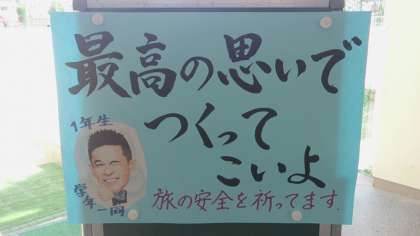 最高の思いで
つくって
こいよ
1年生
学年一同
旅の安全を祈ってます。